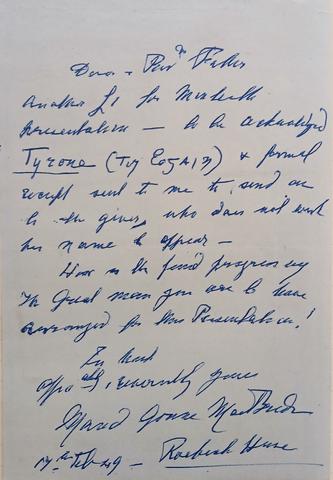 Dear & Revd Father
Another £1 for
Presentation — to be acknowledged
Tyrone (Tir Eoġain) & formal
receipt sent to me to send on
to the giver, who does not want
her name to appear —
How is the fund progressing
The Great man you are to have
arranged for this Presentation!
aff, reverently yours
Maud Gonne MacBride
Feb 49 — Roebuck House